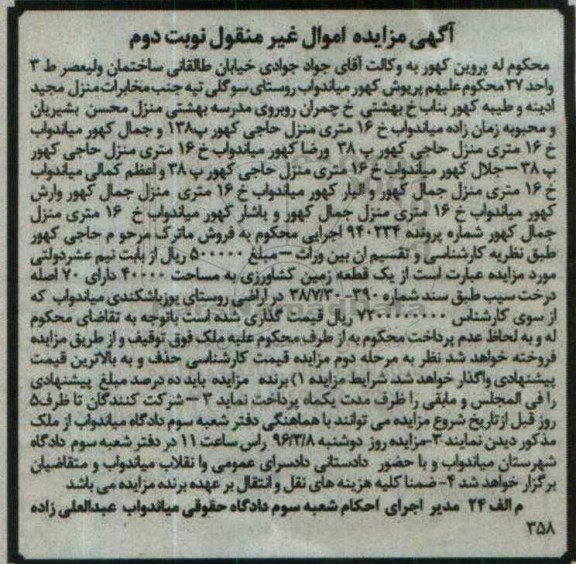 آگهی مزایده اموال غیر منقول نوبت دوم
محکوم له پروین کهور به وکالت آقای جواد جوادی خیابان طالقانی ساختمان ولیعصر ط ۳
واحد ۳۷ محکوم علیهم پریوش کهور میاندواب روستای سوگلی تپه جنب مخابرات منزل مجید
ادینه و طیبه کهور بناب خ بهشتی خ چمران روبروی مدرسه بهشتی منزل محسن بشیریان
و محبوبه زمان زاده میاندواب خ ۱۶ متری منزل حاجی کهور پ۱۳۸ و جمال کهور میاندواب
خ ۱۶ متری منزل حاجی کهور پ ۳۸ ورضا کهور میاندواب خ ۱۶ متری منزل حاجی کهور
پ ۳۸ – جلال کهور میاندواب خ ۱۶ متری منزل حاجی کهور پ ۳۸ و اعظم کمالی میاندواب
خ ۱۶ متری منزل جمال کهور و الیار کهور میاندواب خ ۱۶ متری منزل جمال کهور وارش
کهور میاندواب خ ۱۶ متری منزل جمال کهور و یاشار کهور میاندواب خ ۱۶ متری منزل
جمال کهور شماره پرونده ۹۴۰۲۳۴ اجرایی محکوم به فروش ماترک مرحو م حاجی کهور
طبق نظریه کارشناسی و تقسیم ان بین وراث – مبلغ ۵۰۰۰۰۰ ریال از بابت نیم عشردولتی
مورد مزایده عبارت است از یک قطعه زمین کشاورزی به مساحت ۴۰۰۰۰ دارای ۷۰ اصله
درخت سیب طبق سند شماره ۳۹۰-۳۸/۷/۳۰ در اراضی روستای یوزباشکندی میاندواب که
از سوی کارشناس ریال قیمت گذاری شده است باتوجه به تقاضای محکوم
له و به لحاظ عدم پرداخت محکوم به از طرف محکوم علیه ملک فوق توقیف و از طریق مزایده
فروخته خواهد شد نظر به مرحله دوم مزایده قیمت کارشناسی حذف و به بالاترین قیمت
پیشنهادی واگذار خواهد شد. شرایط مزایده ۱) برنده مزایده باید ده درصد مبلغ پیشنهادی
را فی المجلس و مابقی را ظرف مدت یکماه پرداخت نماید ۲ – شرکت کنندگان تا ظرف۵
روز قبل از تاریخ شروع مزایده می توانند با هماهنگی دفتر شعبه سوم دادگاه میاندواب از ملک
مذکور دیدن نمایند ۳-مزایده روز دوشنبه ۹۶/۳/۸ راس ساعت ۱۱ در دفتر شعبه سوم دادگاه
شهرستان میاندواب و با حضور دادستانی دادسرای عمومی وا نقلاب میاندواب و متقاضیان
برگزار خواهد شد ۴- ضمنا کلیه هزینه های نقل و انتقال بر عهده برنده مزایده می باشد
م الف ۲۴ مدیر اجرای احکام شعبه سوم دادگاه حقوقی میاندواب عبدالعلی زاده
۳۵۸